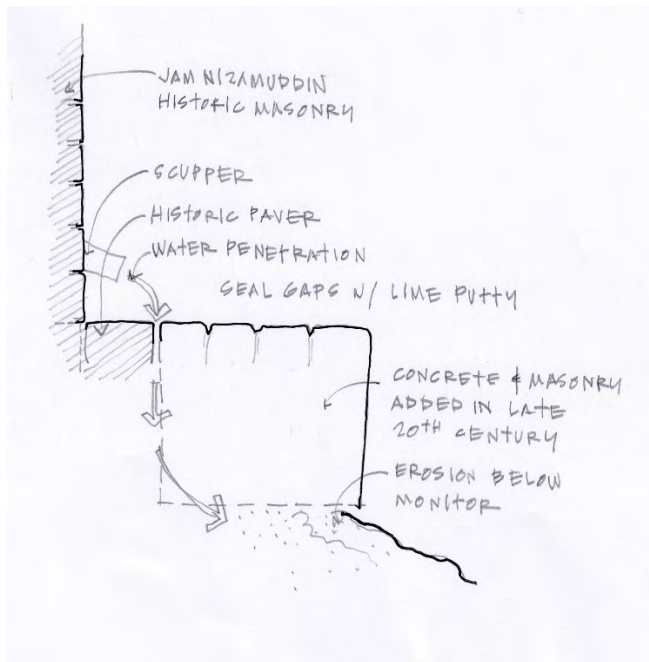 JAM NIZAMUDDIN
HISTORIC MASONRY
SCUPPER
HISTORIC PAVER
WATER PENETRATION
SEAL GAPS W/ LIME PUTTY
CONCRETE & MASONRY
ADDED IN LATE
20TH CENTURY
EROSION BELOW
MONITOR